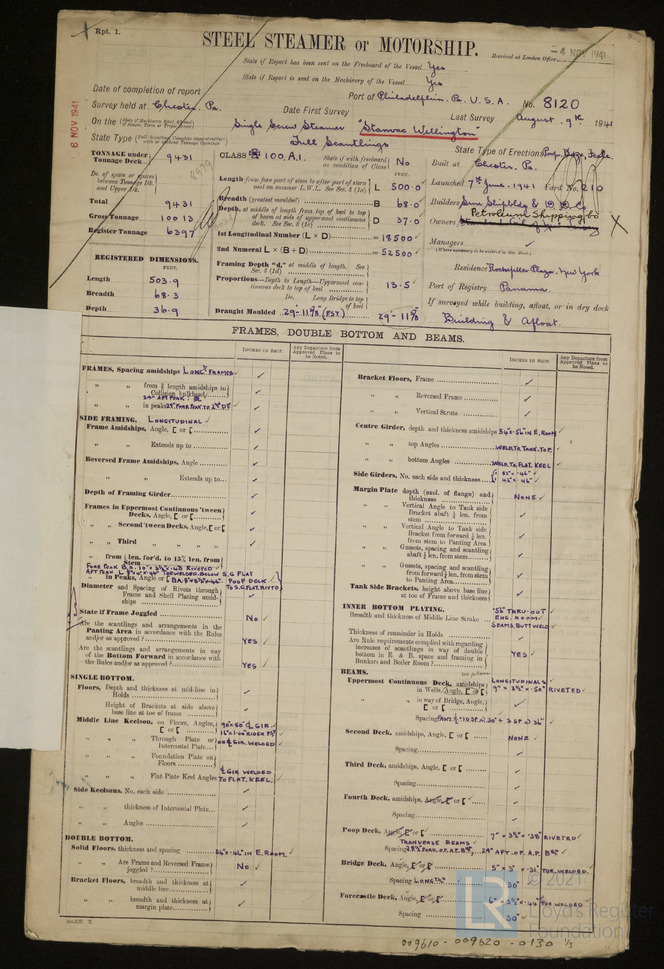 Rpt. 1.
STEEL STEAMER or MOTORSHIP.
-4 NOV 1941
Received at London Office
State if Report has been sent on the Freeboard of the Vessel Yes
State if Report is sent on the Machinery of the Vessel Yes
6 NOV 1941
Date of completion of report
Port of Philadelphia. Pa. U.S.A. No. 8120
Survey held at Chester, Pa. Date First Survey Last Survey August 9th 1941
On the Single Screw Steamer "Stanvac Wellington"
State Type Full Scantlings State Type of Erections Poop, Bdge, Fcstle.
TONNAGE under Tonnage Deck 9431
CLASS 100 A.1. State if with freeboard as condition of Class No
Built at Chester, Pa.
Launched 7th June. 1941 Yard No. 210
Length from fore part of stem to after part of stern post on summer L.W.L. See Sec. 3 (1a) L 500.0
Breadth (greatest moulded) B 68.0
Builders Sun Shipbldg & D.D. Co
Total 9431
Gross Tonnage 10013
Register Tonnage 6397
Depth, at middle of length from top of keel to top of beam at side of uppermost continuous deck. See Sec. 3 (1c) D 37.0
Petroleum Shipping Co
Owners
1st Longitudinal Number (L × D) = 18500
2nd Numeral L × (B + D) = 52500
Managers
REGISTERED DIMENSIONS.
FEET.
Framing Depth "d," at middle of length. See Sec. 3 (1d)
Residence Rockefeller Plaza, New York
Length 503.9
Proportions—Depth to Length—Uppermost continuous deck to top of keel 13.5
Port of Registry Panama.
Breadth 68.3
Do. Long Bridge to top of keel
If surveyed while building, afloat, or in dry dock
Depth 36.9
Draught Moulded
Building & Afloat.
FRAMES, DOUBLE BOTTOM AND BEAMS.
INCHES IN SHIP.
Any Departure from Approved Plans to be Noted.
INCHES IN SHIP.
Any Departure from Approved Plans to be Noted.
FRAMES, Spacing amidships LONGL FRAMED
" " from ⅗ length amidships to Collision bulkhead
" " in peaks
SIDE FRAMING. LONGITUDINAL
Frame Amidships, Angle, [ or [
" " Extends up to
Reversed Frame Amidships, Angle
" " Extends up to
Depth of Framing Girder
Frames in Uppermost Continuous 'tween Decks, Angle, [ or [
" " Second 'tween Decks, Angle, [ or [
" " Third " "
" from ¼ len. for'd. to 15% len. from Stem
" in Peaks, Angle or [
Diameter and Spacing of Rivets through Frame and Shell Plating amidships
State if Frame Joggled No
Are the scantlings and arrangements in the Panting Area in accordance with the Rules and/or as approved? YES
Are the scantlings and arrangements in way of the Bottom Forward in accordance with the Rules and/or as approved? YES
SINGLE BOTTOM.
Floors, Depth and thickness at mid-line in Holds
Height of Brackets at Side above base line at toe of frame
Middle Line Keelson, on Floors, Angles, [ or [
" " Through Plate or Intercostal Plate
" " Foundation Plate on Floors
" " Flat Plate Keel Angles GIR WELDED TO FLAT KEEL.
Side Keelsons, No. each side
" " thickness of Intercostal Plate
" " Angles
DOUBLE BOTTOM.
Solid Floors, thickness and spacing IN E. ROOM
" " Are Frame and Reversed Frame joggled? No
Bracket Floors, breadth and thickness at middle line
" " breadth and thickness at margin plate
Bracket Floors, Frame
" " Reversed Frame
" " Vertical Struts
Centre Girder, depth and thickness amidships 54"×.56" IN E. ROOM
" " top Angles WELD. TO TANK. TOP.
" " bottom Angles WELD. TO FLAT. KEEL
Side Girders, No. each side and thickness
Margin Plate depth (excl. of flange) and thickness NONE
" " Vertical Angle to Tank side Bracket abaft ¼ len. from stem
" " Vertical Angle to Tank side Bracket from forward ¼ len. from stem to Panting Area
" " Gussets, spacing and scantling abaft ¼ len. from stem
" " Gussets, spacing and scantling from forward ¼ len. from stem to Panting Area
Tank Side Brackets, height above base line at toe of Frame and thickness
INNER BOTTOM PLATING.
Breadth and thickness of Middle Line Strake .56" THRU-OUT ENG. ROOM
Thickness of remainder in Holds SEAMS, BUTT WELD
Are Rule requirements complied with regarding increases of scantlings in way of double bottom in E. & B. space and framing in Bunkers and Boiler Room? YES
BEAMS.
Uppermost Continuous Deck, amidships in Wells, Angle, [ or [ LONGITUDINALS RIVETED
" " in way of Bridge, Angle, [ or [
Spacing
Second Deck, amidships, Angle, [ or [ NONE
Spacing
Third Deck, amidships, Angle, [ or [
Spacing
Fourth Deck, amidships, Angle, [ or [
Spacing
Poop Deck, Angle, [ or [ 7" × 3½" × .38" RIVETED
TRANVERSE BEAMS
Spacing
Bridge Deck, Angle, [ or [ TOR. WELDED.
Spacing 30"
Forecastle Deck, Angle, [ or [ TOR WELDED
Spacing 30"
© 2021
LR
Lloyd's Register
Foundation
009610 - 009620 - 0130 ⅓